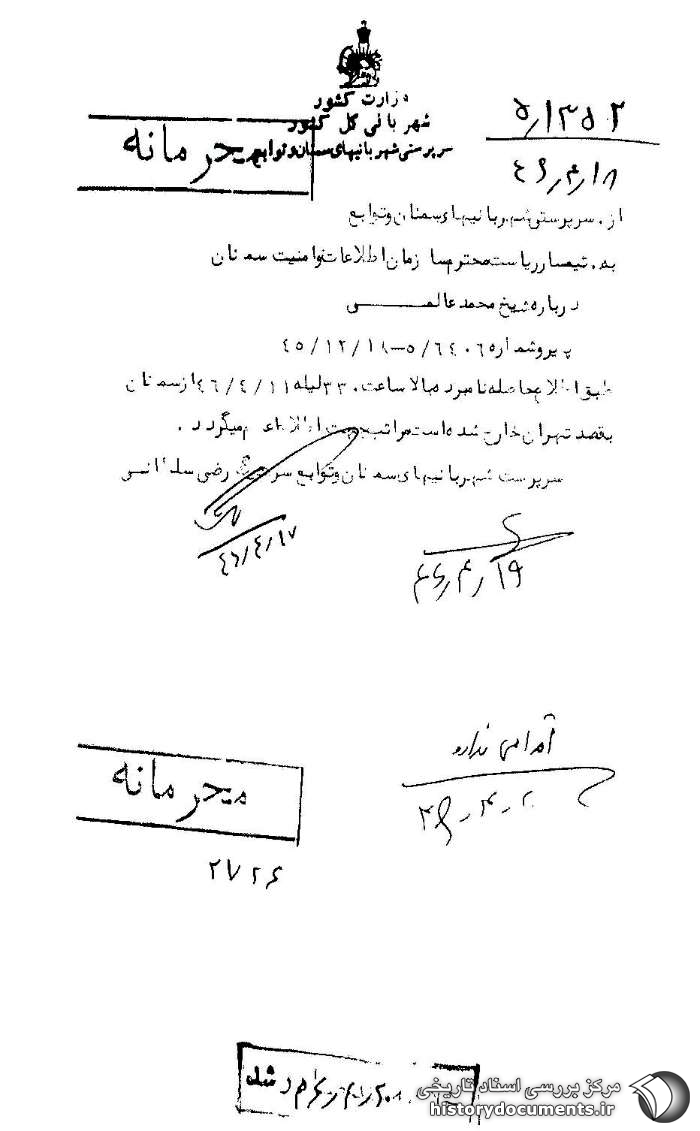 وزارت کشور
شهربانی کل کشور
سرپرستی شهربانیهای سمنان و توابع
محرمانه
۵/۱۳۵۲
۴۶/۴/۱۸
از، سرپرستی شهربانیهای سمنان و توابع
به، تیمسار ریاست محترم سازمان اطلاعات و امنیت سمنان
درباره شیخ محمد عالمی
پیرو شماره ۵/۶۴۰۶-۴۵/۱۲/۱۸
طبق اطلاع حاصله نامبرده بالا ساعت لیله ۴۶/۴/۱۱ از سمنان
بقصد تهران خارج شده است مراتب جهت اطلاع اعلام میگردد.
سرپرست شهربانیهای سمنان و توابع رضی سلطانی
۴۶/۴/۱۷
۴۶/۴/۱۹
ندارد
محرمانه
۲۷۲۶
شد
مرکز بررسی اسناد تاریخی
historydocuments.ir